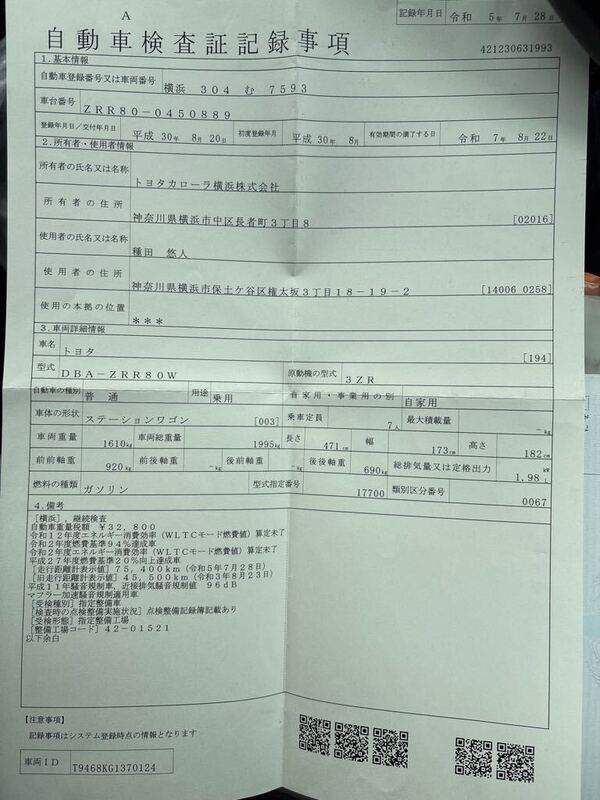 A
記録年月日 令和 5年 7月 28日
自動車検査証記録事項
421230631993
1.基本情報
自動車登録番号又は車両番号 横浜 304 む 7593
車台番号 ZRR80-0450889
登録年月日/交付年月日 平成 30年 8月 20日 初度登録年月 平成 30年 8月 有効期間の満了する日 令和 7年 8月 22日
2.所有者・使用者情報
所有者の氏名又は名称 トヨタカローラ横浜株式会社
所有者の住所 神奈川県横浜市中区長者町3丁目8 [02016]
使用者の氏名又は名称 種田 悠人
使用者の住所 神奈川県横浜市保土ケ谷区権太坂3丁目18-19-2 [14006 0258]
使用の本拠の位置 ***
3.車両詳細情報
車名 トヨタ [194]
型式 DBA-ZRR80W 原動機の型式 3ZR
自動車の種別 普通 用途 乗用 自家用・事業用の別 自家用
車体の形状 ステーションワゴン [003] 乗車定員 7人 最大積載量 -kg
車両重量 1610kg 車両総重量 1995kg 長さ 471cm 幅 173cm 高さ 182cm
前前軸重 920kg 前後軸重 -kg 後前軸重 -kg 後後軸重 690kg 総排気量又は定格出力 1.98 kW L
燃料の種類 ガソリン 型式指定番号 17700 類別区分番号 0067
4.備考
[横浜],継続検査
自動車重量税額 ¥32,800
令和12年度エネルギー消費効率(WLTCモード燃費値)算定未了
令和2年度燃費基準94%達成車
令和2年度エネルギー消費効率(WLTCモード燃費値)算定未了
平成27年度燃費基準20%向上達成車
[走行距離計表示値]75,400km(令和5年7月28日)
[旧走行距離計表示値]45,500km(令和3年8月23日)
平成11年騒音規制車、近接排気騒音規制値 96dB
マフラー加速騒音規制適用車
[受検種別]指定整備車
[検査時の点検整備実施状況]点検整備記録簿記載あり
[受検形態]指定整備工場
[整備工場コード]42-01521
以下余白
【注意事項】
記録事項はシステム登録時点の情報となります
車両ID T9468KG1370124